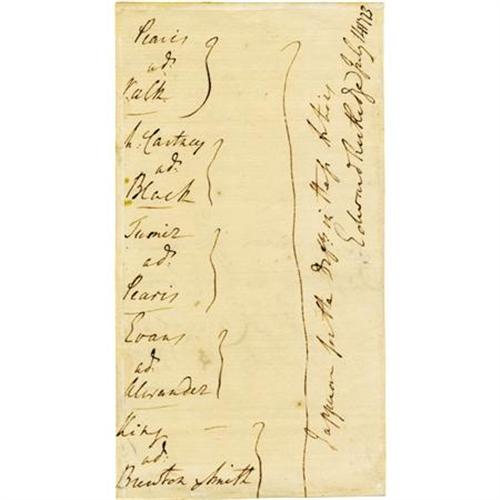 Pearis
ads.
Valk
McCartney
ads.
Black
Turner
ads.
Pearis
Evans
ads.
Alexander
King
ads.
Brewton & Smith
I appear for the Defts. in these Actions
Edward Rutledge July 14 1773